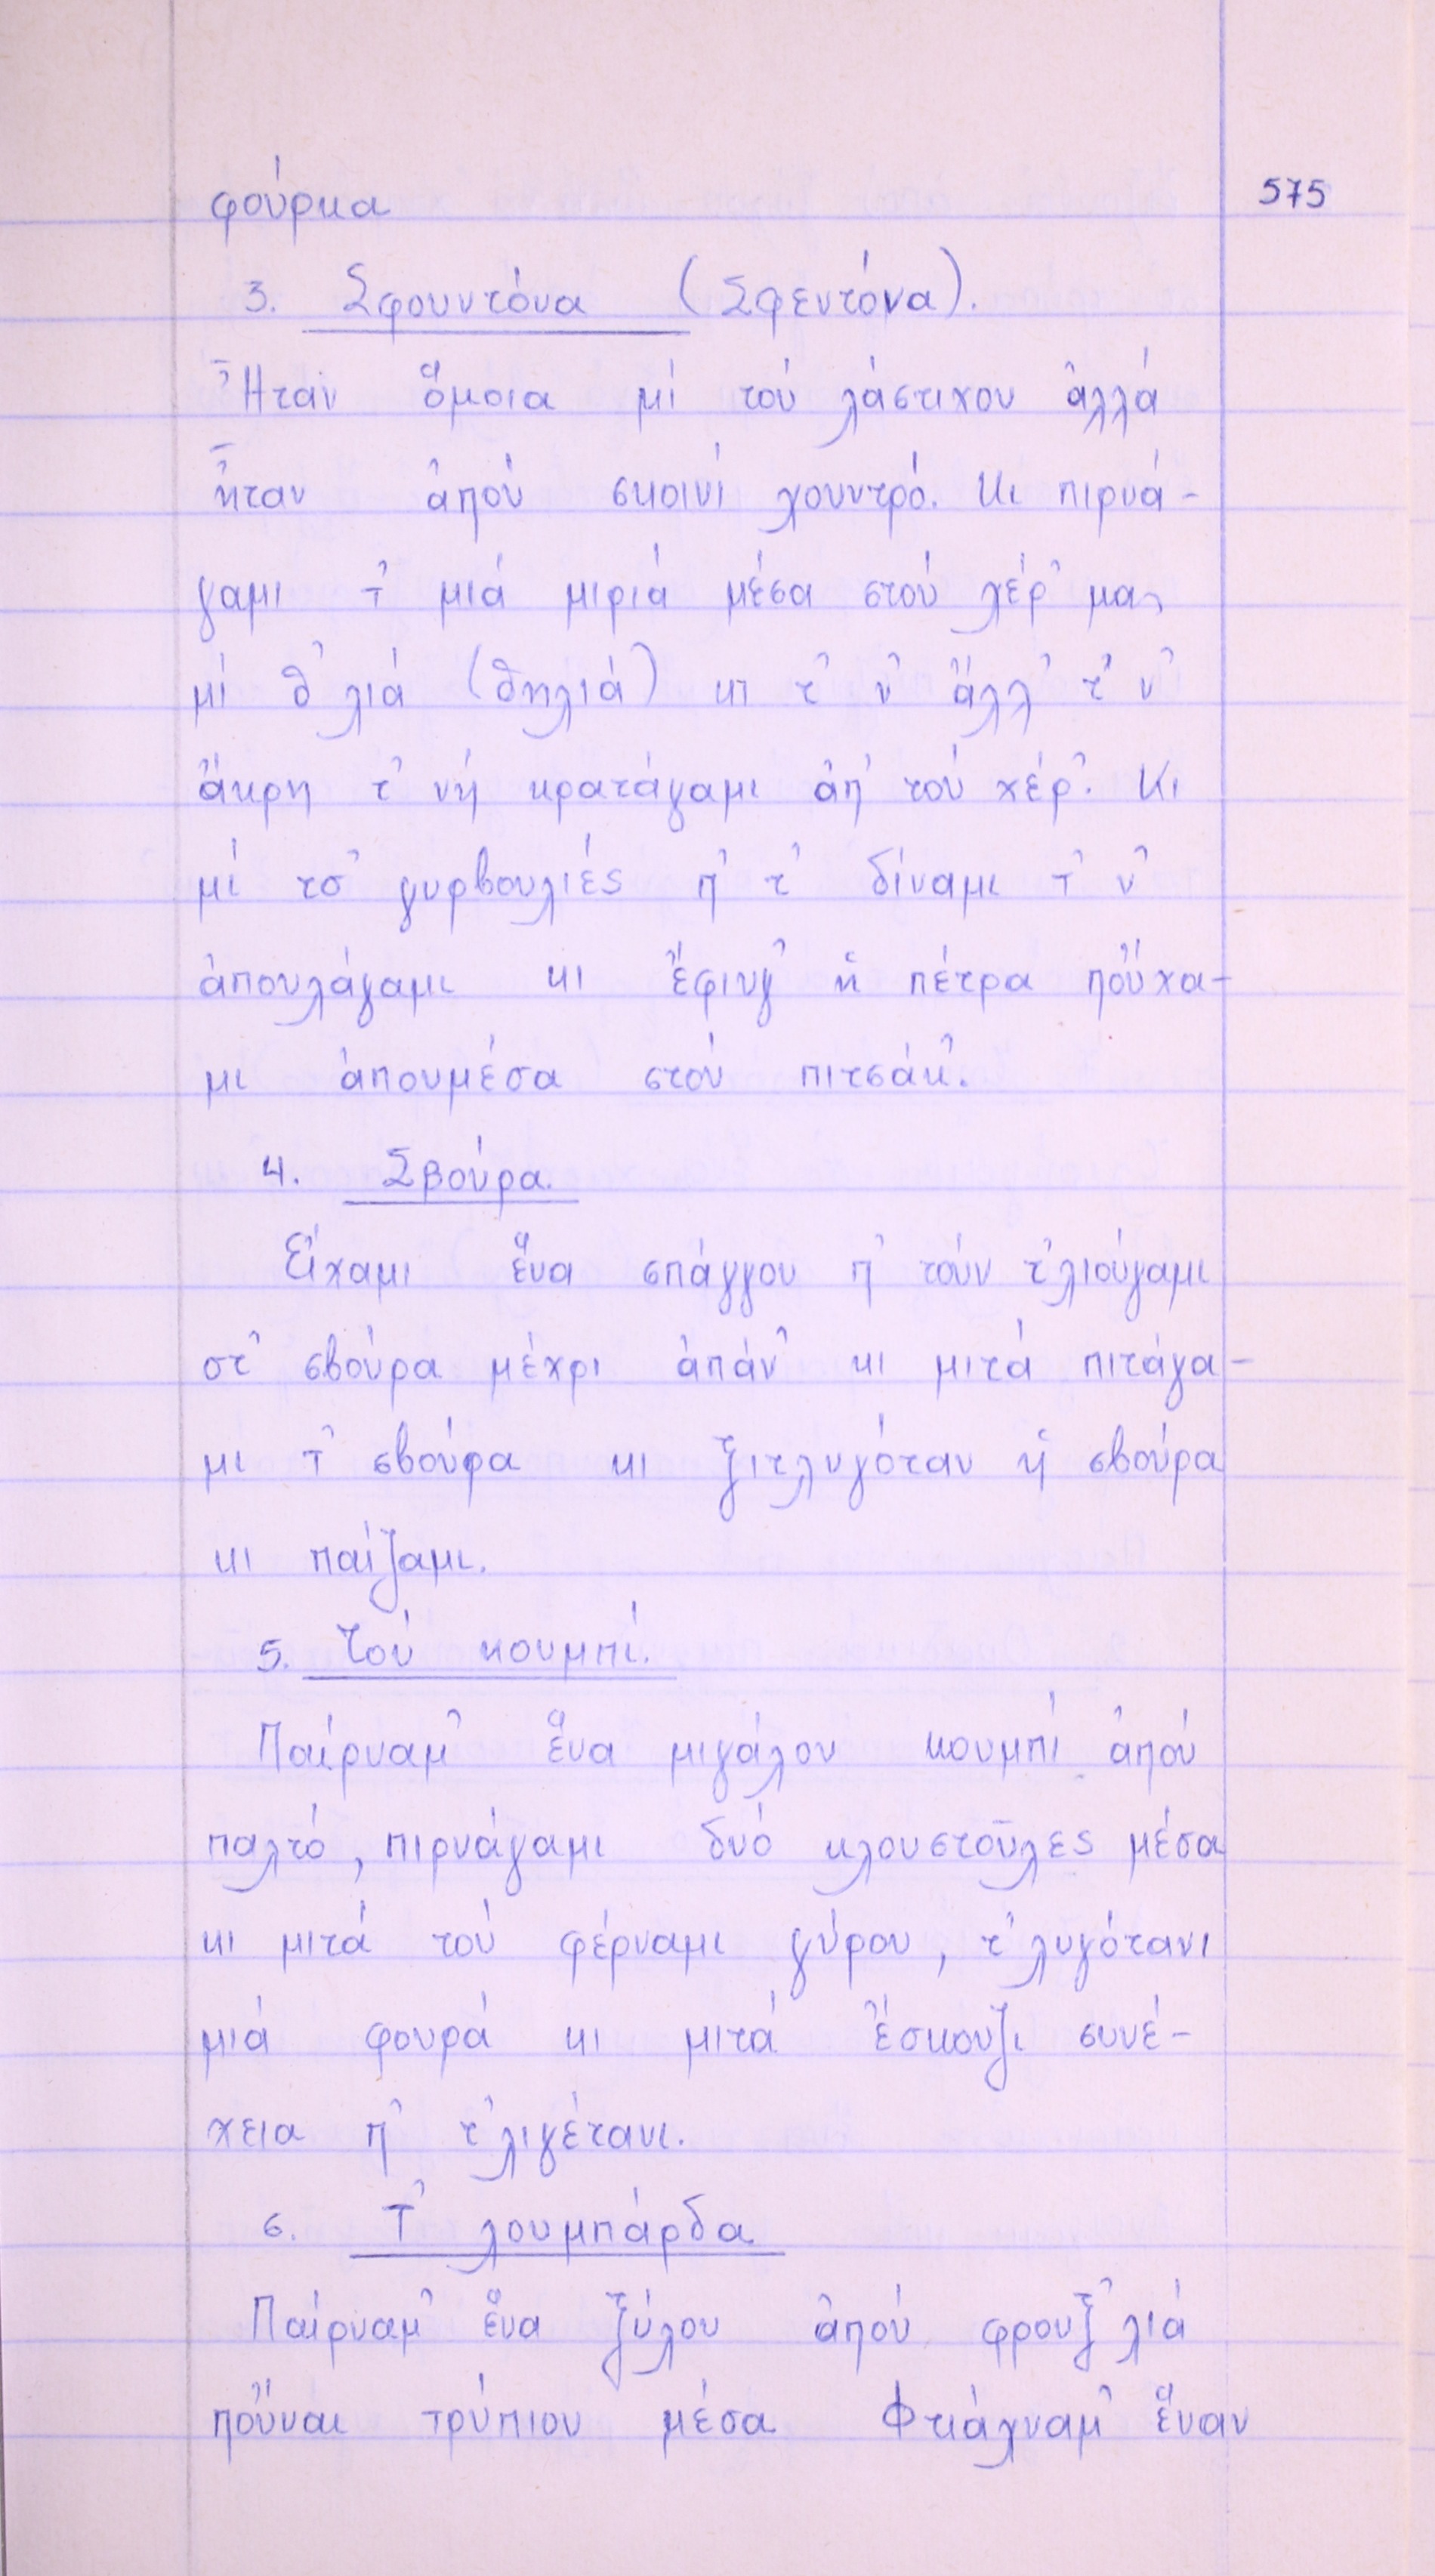 575
φούρκα
3. Σφουντόνα (Σφεντόνα).
Ἦταν ὅμοια μί τού λάστιχου ἀλλά
ἦταν ἀπού σκοινί χουντρό. Κι πιρνά-
γαμι τ' μιά μιριά μέσα στού χέρ' μας
μί θ'λιά (θηλιά) κι τ' ν' ἄλλ' τ' ν'
ἄκρη τ' νή κρατάγαμι ἀπ' τού χέρ'. Κι
μί τσ' γυρβουλιές π' τ' δίναμι τ' ν'
ἀπουλάγαμι κι ἔφιυγ' ἡ πέτρα ποὔχα-
μι ἀπουμέσα στού πιτσάκ'.
4. Σβούρα.
Εἴχαμι ἕνα σπάγγου π' τούν τ'λιούγαμι
στ' σβούρα μέχρι ἀπάν' κι μιτά πιτάγα-
μι τ' σβούρα κι ξιτλυγόταν ἡ σβούρα
κι παίζαμι.
5. Τού κουμπί.
Παίρναμ' ἕνα μιγάλου κουμπί ἀπού
παλτό, πιρνάγαμι δυό κλουστοῦλες μέσα
κι μιτά τού φέρναμι γύρου, τ'λυγότανι
μιά φουρά κι μιτά ἔσκουζι συνέ-
χεια π' τ'λιγέτανι.
6. Τ' λουμπάρδα
Παίρναμ' ἕνα ξύλου ἀπού φρουξ'λιά
ποὔναι τρύπιου μέσα Φτιάχναμ' ἕναν